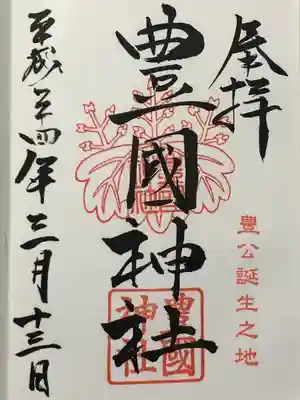 奉拝
豊公誕生之地
豊國神社
豊國
神社
平成二十四年三月十三日